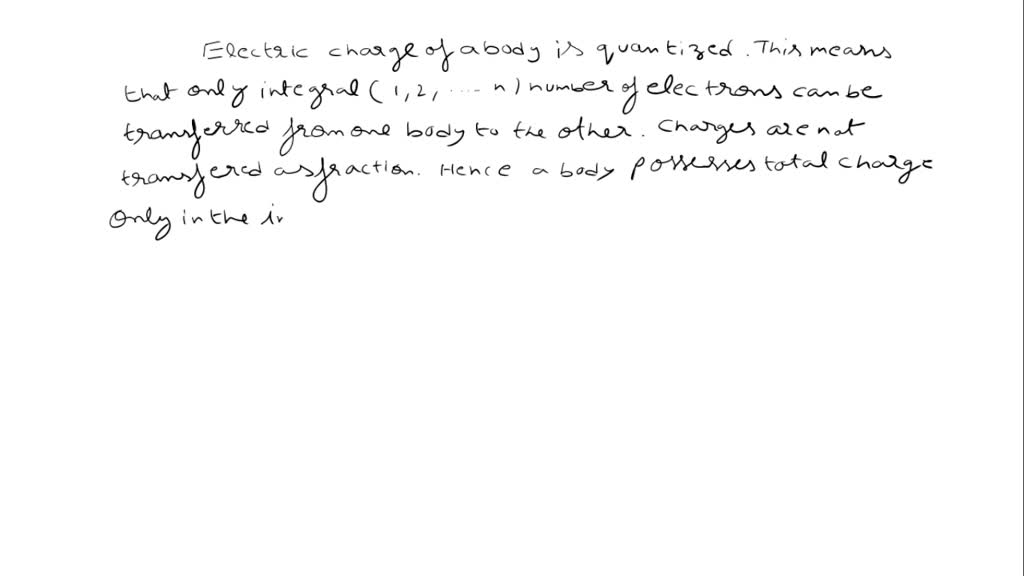 Electric charge of a body is quantized. This means
that only integral (1, 2, .... n) number of electrons can be
transferred from one body to the other. Charges are not
transfered as fraction. Hence a body possesses total charge
only in the